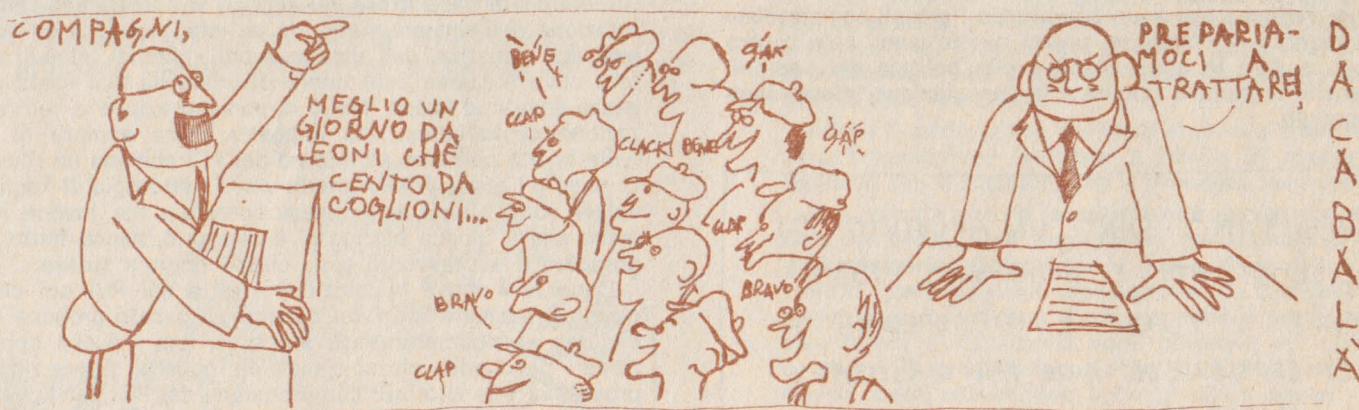 COMPAGNI,
MEGLIO UN
GIORNO DA
LEONI CHE
CENTO DA
COGLIONI...
BENE
CLAP
GAK
CLACK!
BENE
GAP
CLAP
BRAVO
BRAVO
CLAP
PREPARIA-
MOCI A
TRATTARE!
DACABALÀ